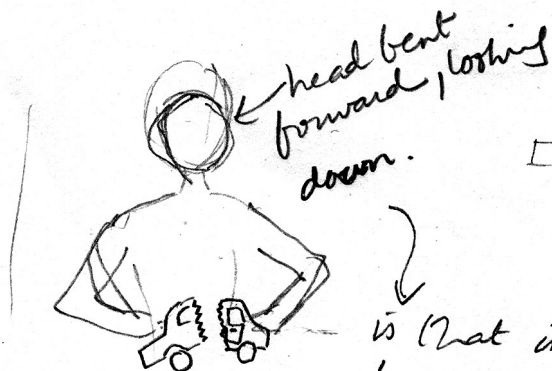 head bent
forward, looking
down.
is that i